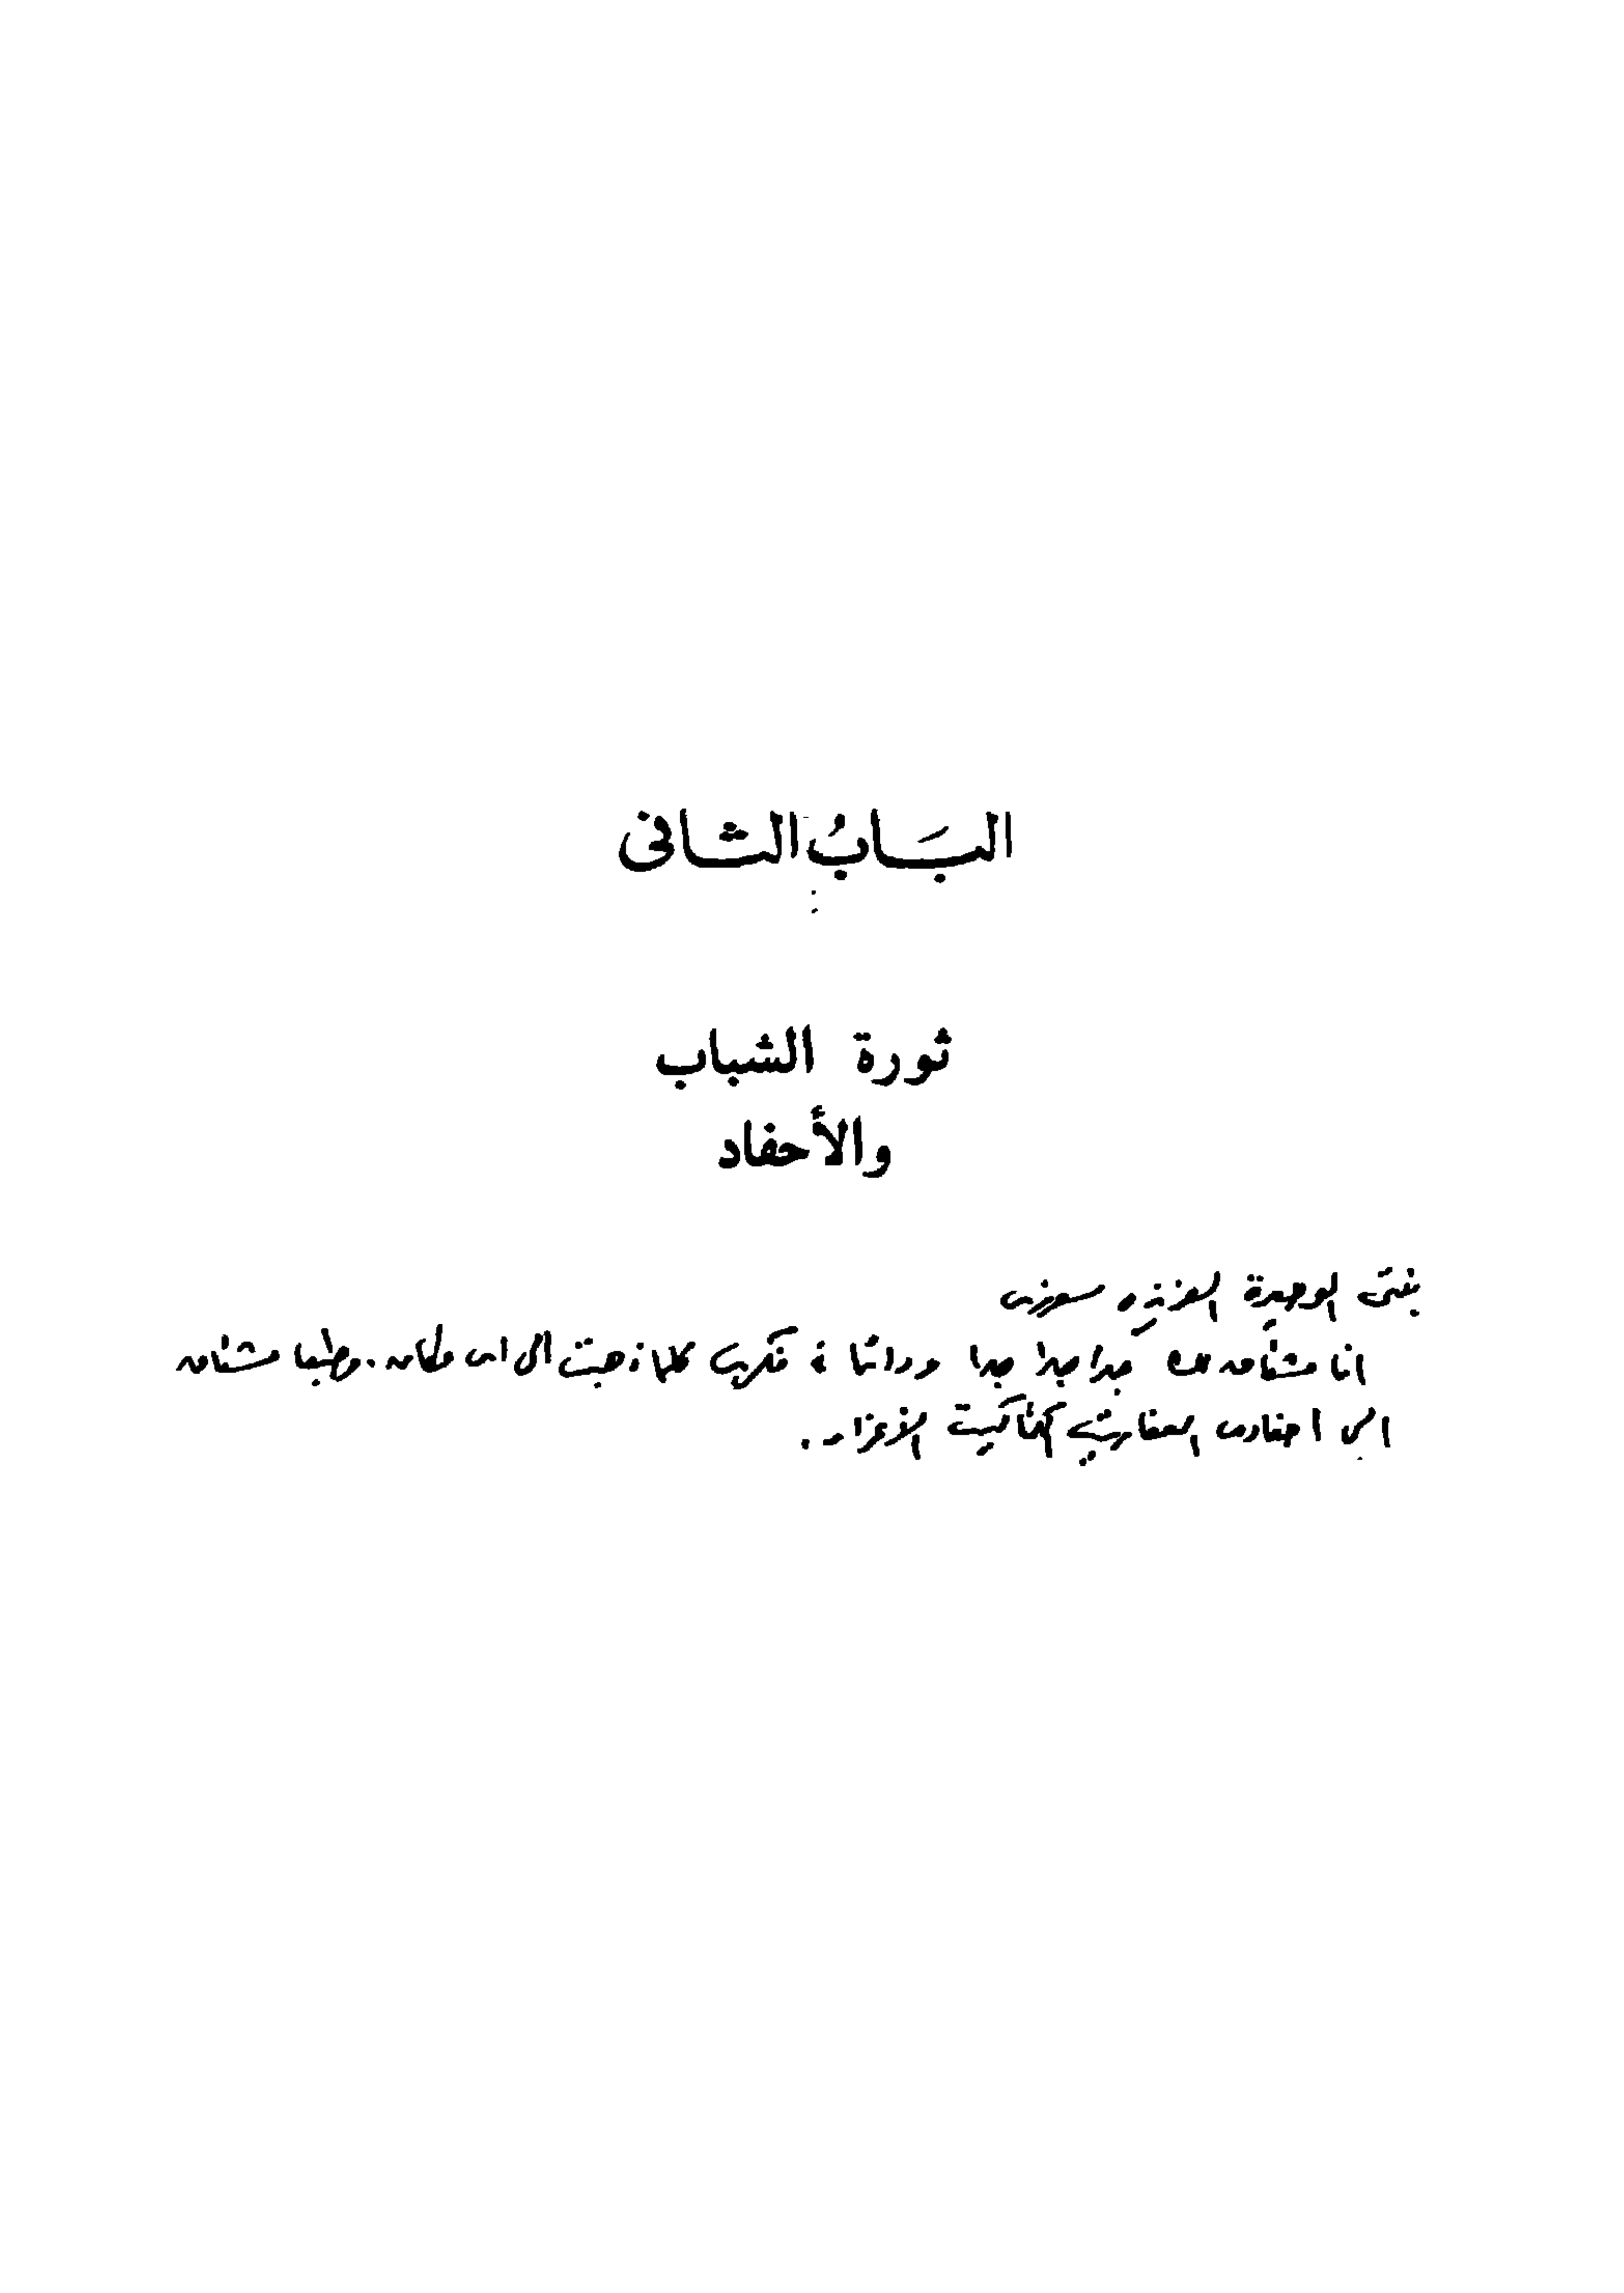 البَابُ الثانى
ثورة الشباب
والأحفاد
بنتى الوحيدة العزيزه سوزى
انا مشتاق لك جدا جداً جدا ودائما فى فكرى كلما ذهبت الى اى مكان. وطبعا مشتاق
الى احفادى العفاريت الأعزاء.